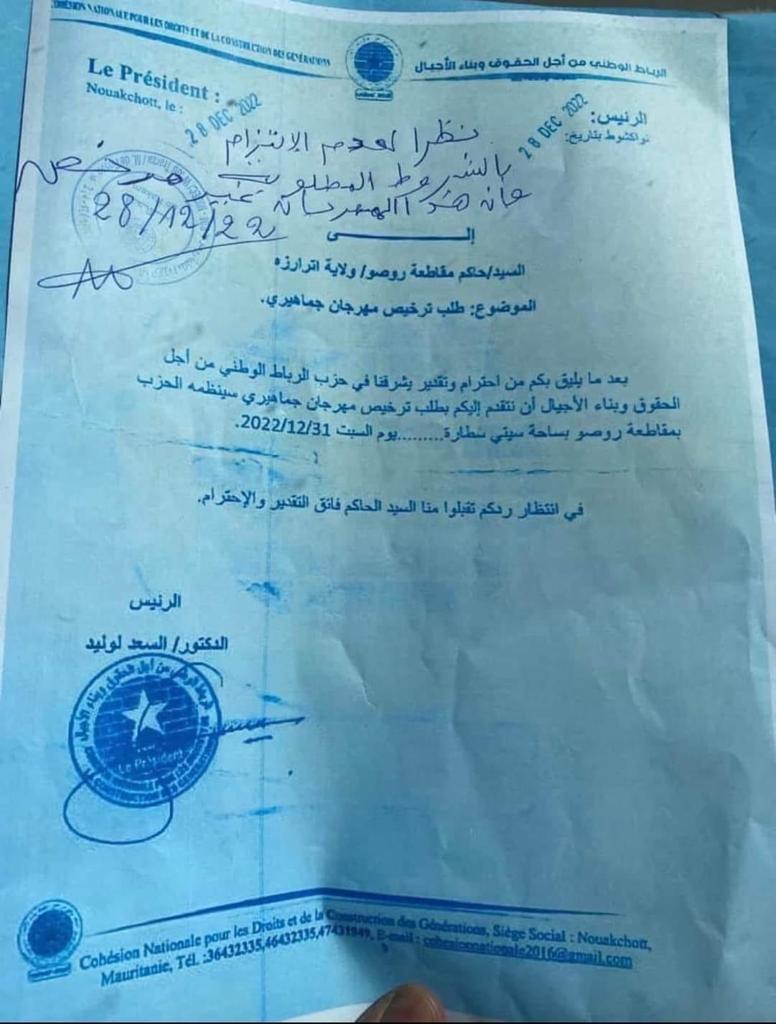 COHÉSION NATIONALE POUR LES DROITS ET DE LA CONSTRUCTION DES GÉNÉRATIONS
الرباط الوطني من أجل الحقوق وبناء الأجيال
Le Président :
Nouakchott, le :
28 DEC 2022
الرئيس:
نواكشوط بتاريخ:
28 DEC 2022
نظرا لعدم الالتزام
بالشروط المطلوبة
فان هذا المهرجان غير مرخص
28/12/22
إلـــــــــى
السيد/حاكم مقاطعة روصو/ ولاية اترارزه
الموضوع: طلب ترخيص مهرجان جماهيري.
بعد ما يليق بكم من احترام وتقدير يشرفنا في حزب الرباط الوطني من أجل
الحقوق وبناء الأجيال أن نتقدم إليكم بطلب ترخيص مهرجان جماهيري سينظمه الحزب
بمقاطعة روصو بساحة سيتي سطارة.........يوم السبت 2022/12/31.
في انتظار ردكم تقبلوا منا السيد الحاكم فائق التقدير والإحترام.
الرئيس
الدكتور/ السعد لوليد
الرباط الوطني من أجل الحقوق وبناء الأجيال
Le Président
Cohésion Nationale pour les Droits et de la Construction des Générations, Siège Social : Nouakchott,
Mauritanie, Tél. :36432335,46432335,47431949, E-mail : cohesionnationale2016@gmail.com